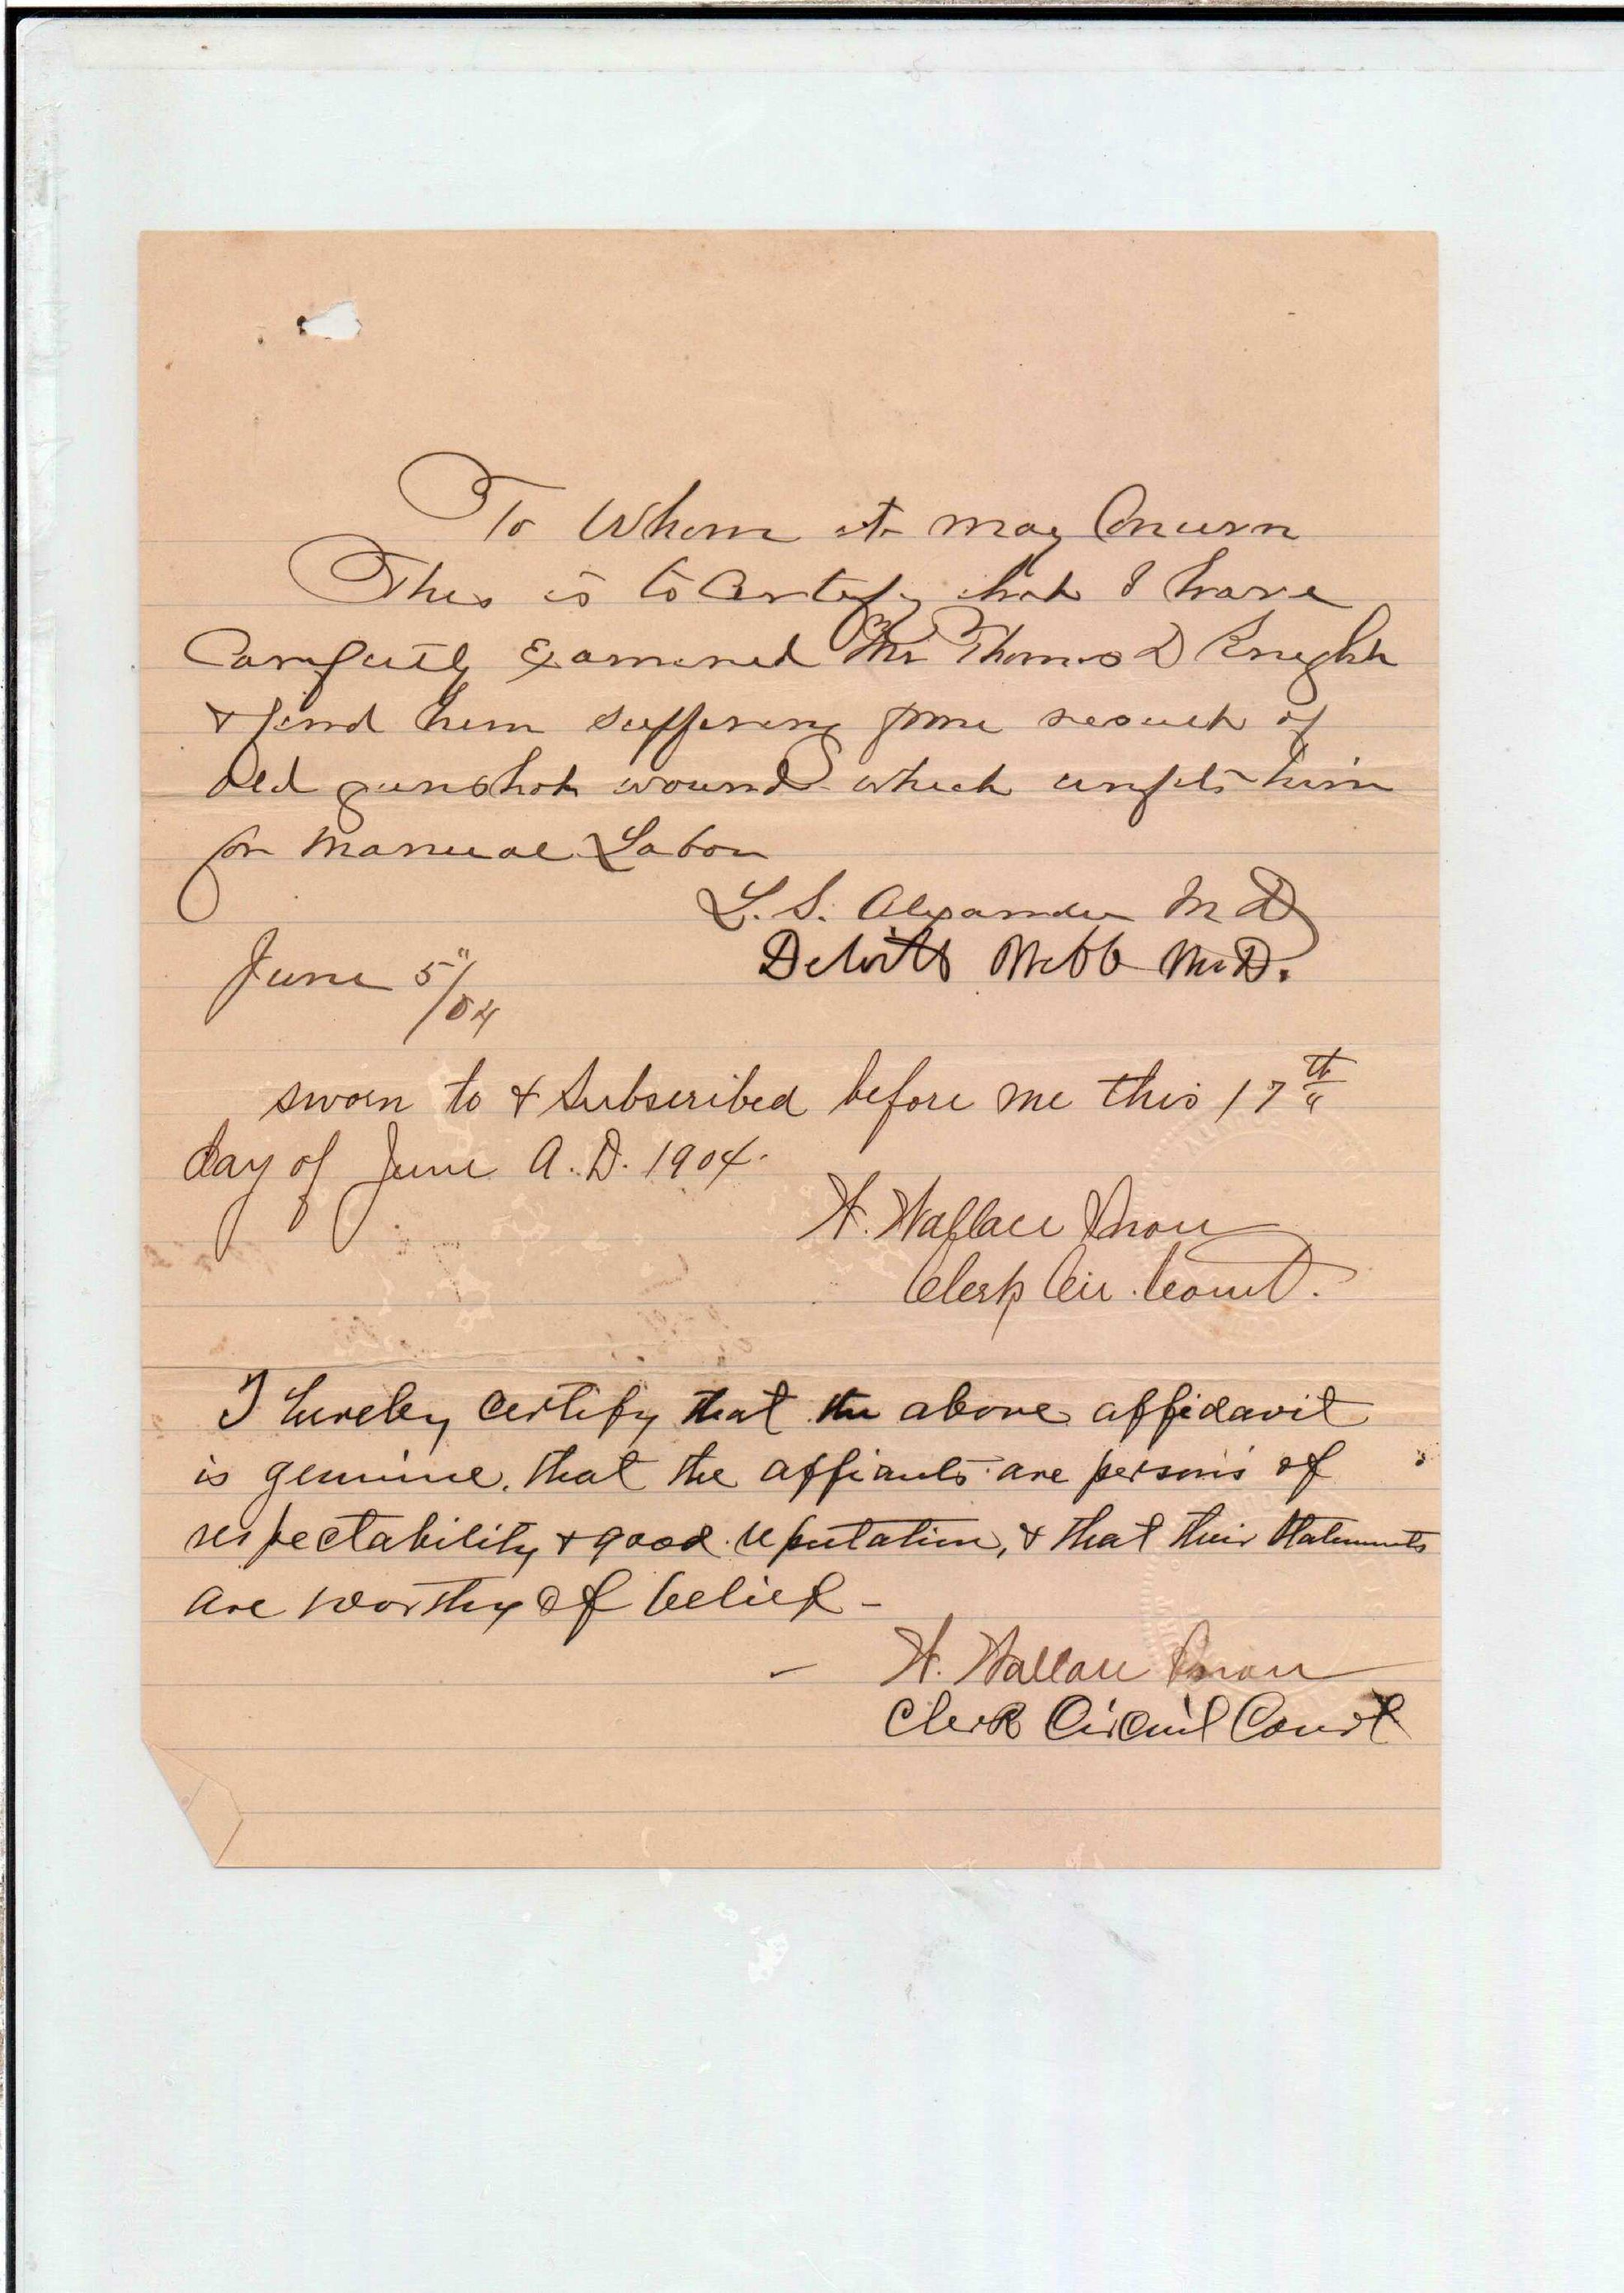 To Whom it may Concern
This is to Certify that I have
Carefully Examined Mr Thomas D Knight
& find him suffering from result of
Old gunshot wound which unfits him
for Manual Labor
L. S. Alexander M D
DeWitt Webb M.D.
June 5"/04
sworn to & Subscribed before me this 17th
day of June A.D. 1904.
W. Wallace Snow
Clerk Cir. Court.
I hereby certify that the above affidavit
is genuine, that the affiants are persons of
respectability & good reputation, & that their statements
are worthy of belief -
W. Wallace Snow
Clerk Circuit Court